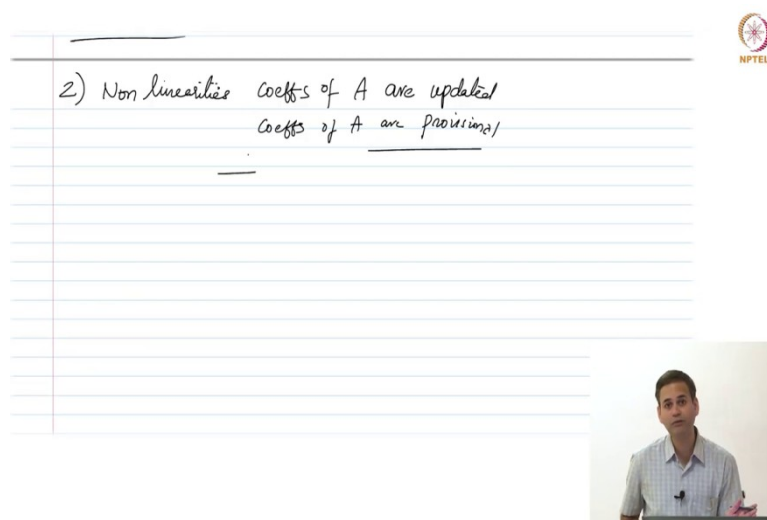 NPTEL
2) Non linearities coeffs of A are updated
coeffs of A are provisional